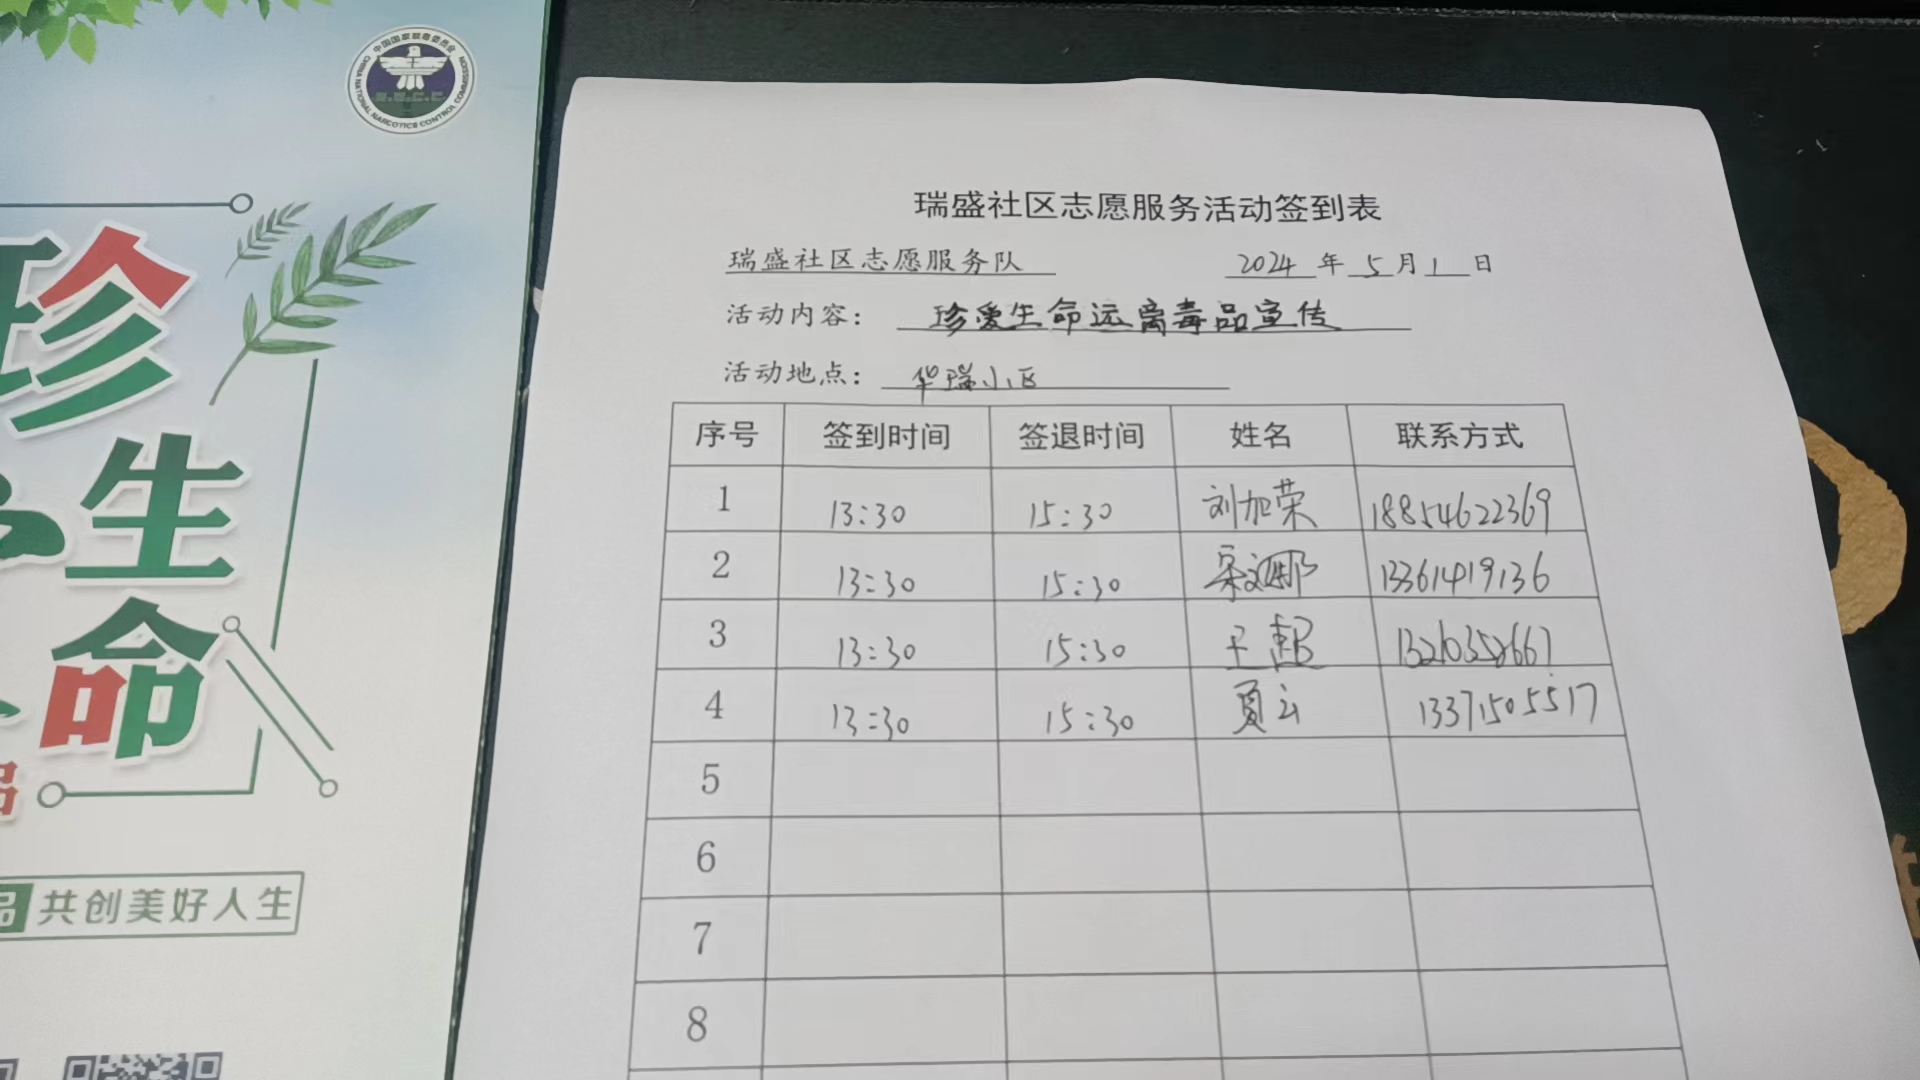 中国国家禁毒委员会
CHINA NATIONAL NARCOTICS CONTROL COMMISSION
珍
生
命
品 共创美好人生
瑞盛社区志愿服务活动签到表
瑞盛社区志愿服务队 2024 年 5 月 1 日
活动内容： 珍爱生命远离毒品宣传
活动地点： 华瑞小区
序号 签到时间 签退时间 姓名 联系方式
1 13:30 15:30 刘加荣 18854622369
2 13:30 15:30 13361419136
3 13:30 15:30 王超
4 13:30 15:30 夏云 13371505517
5
6
7
8